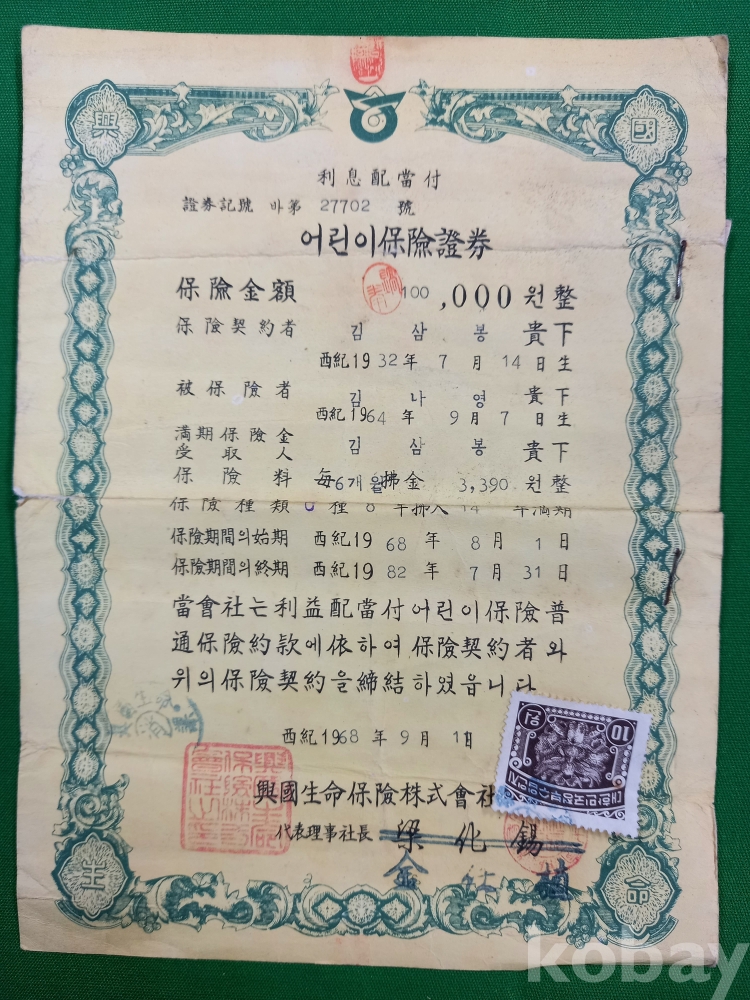 興 國
利息配當付
證券記號 바第 27702 號
어린이保險證券
保險金額 100,000원整
保險契約者 김 삼 봉 貴下
西紀1932年 7月 14日生
被保險者 김 나 영 貴下
西紀1964年 9月 7日生
滿期保險金
受取人 김 삼 봉 貴下
保險料 每6개월拂金 3,390원整
保險種類 種 8 年拂入 14 年滿期
保險期間의始期 西紀1968年 8月 1日
保險期間의終期 西紀1982年 7月 31日
當會社는利益配當付어린이保險普
通保險約款에依하여 保險契約者와
위의保險契約을締結하였읍니다
西紀1968年 9月 1日
興國生命保險株式會社
代表理事社長 梁化錫
金
10 원
生 命
kobay